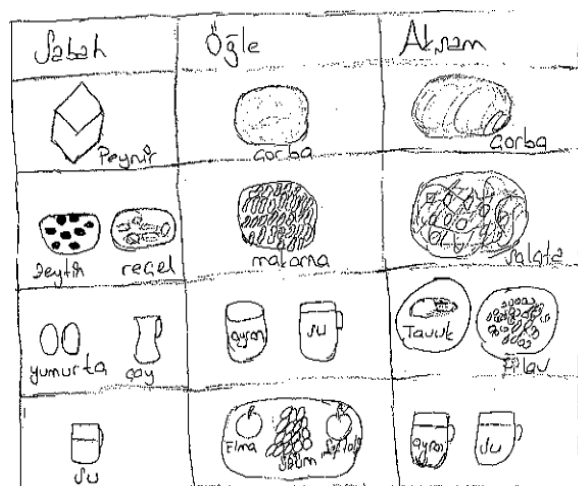 Sabah Öğle Akşam
Peynir çorba çorba
Zeytin reçel makarna salata
yumurta çay ayran su Tavuk Pilav
su Elma üzüm ayran su